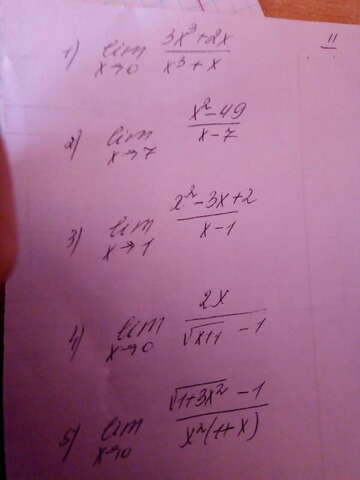 11
1) lim x→0 (3x³+2x)/(x³+x)
2) lim x→7 (x²-49)/(x-7)
3) lim x→1 (x²-3x+2)/(x-1)
4) lim x→0 2x/(√x+1 -1)
5) lim x→0 (√1+3x² -1)/(x²(1+x))